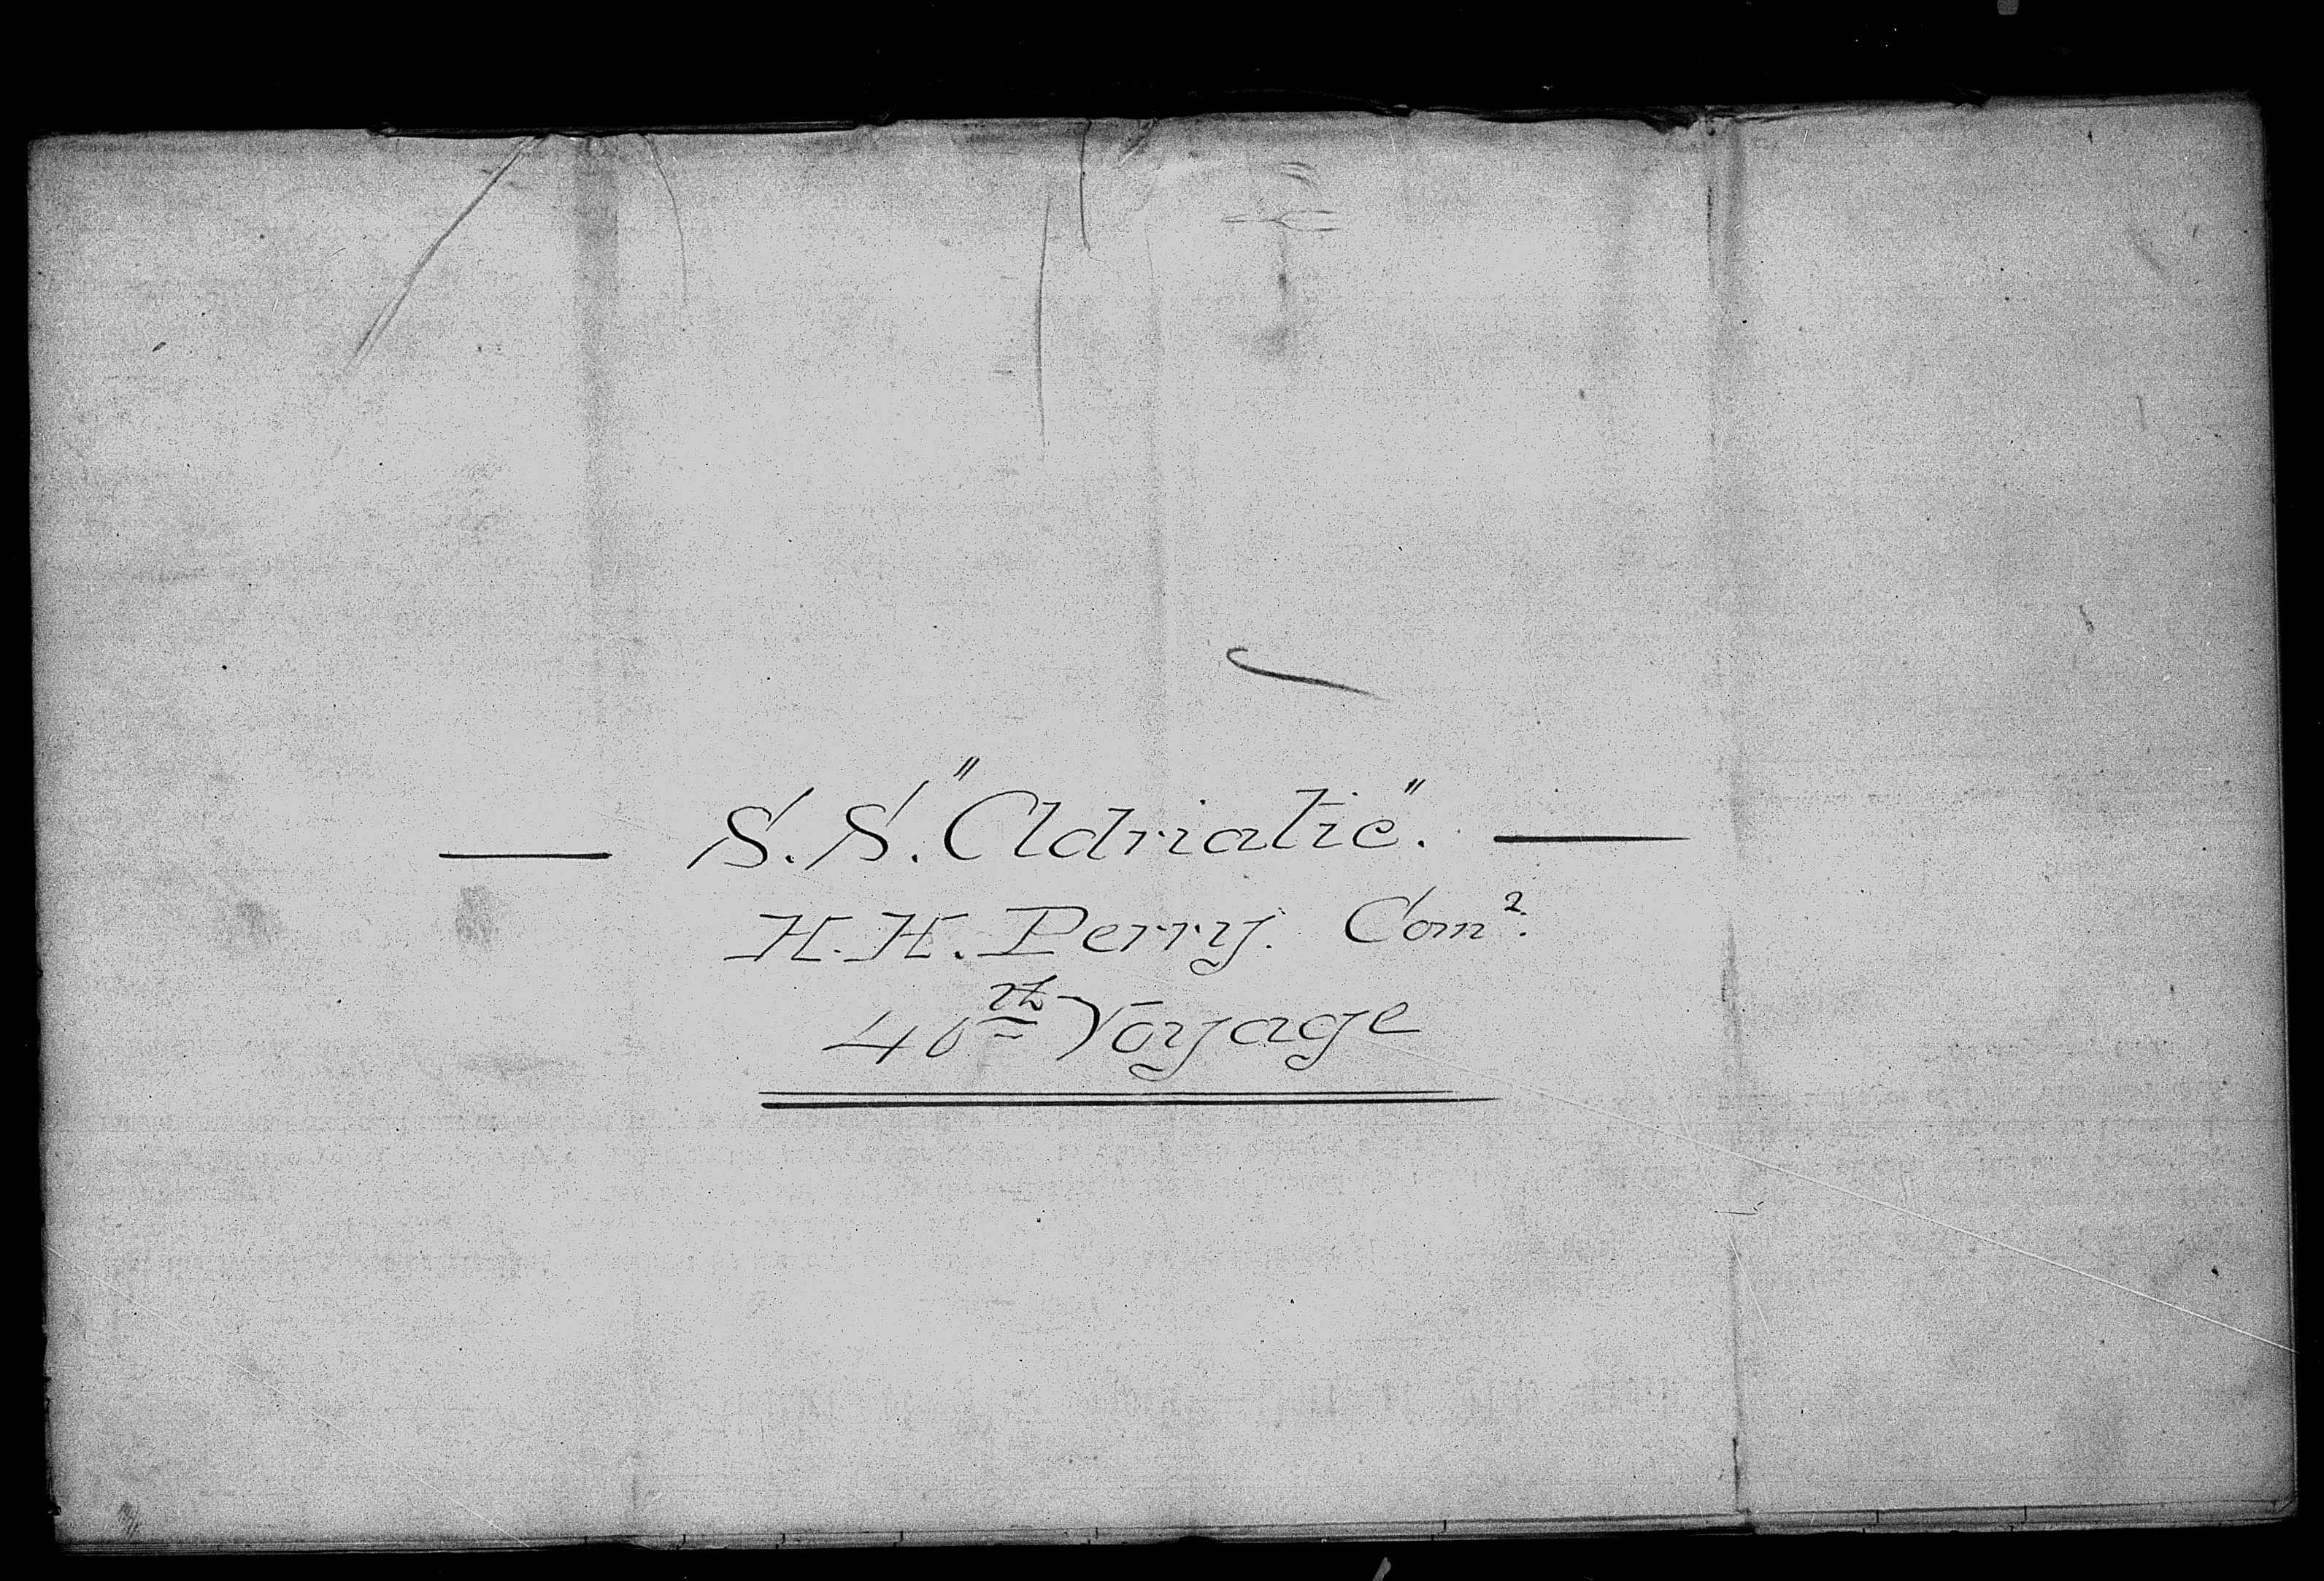 — S.S. "Adriatic". —
H.H. Perry. Com^r.
40th Voyage